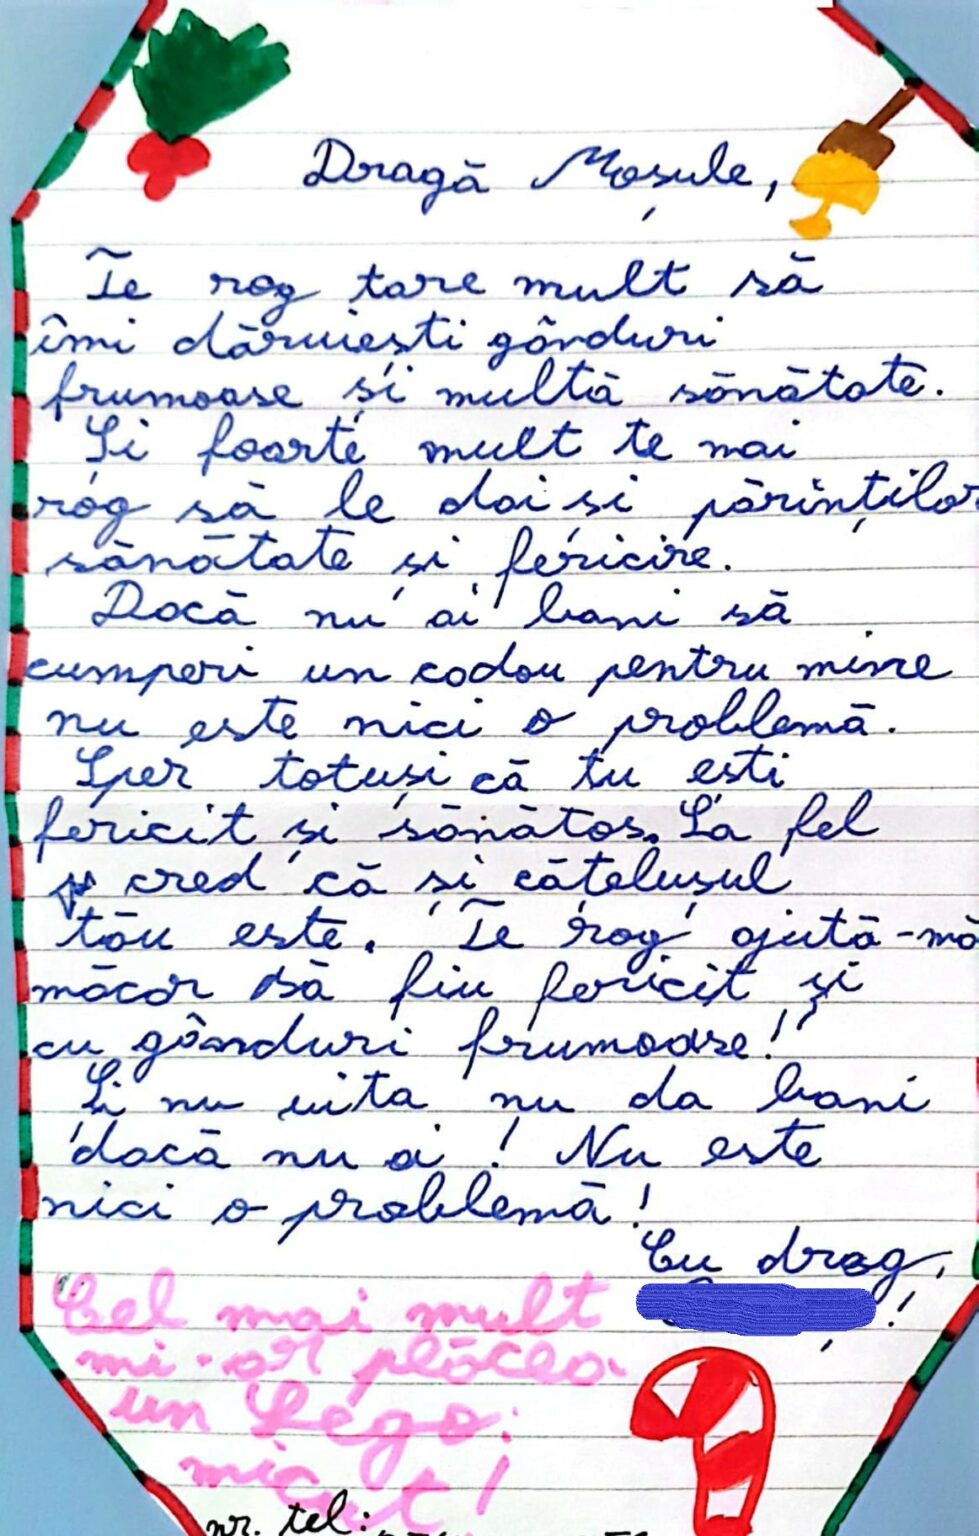 Dragă Moșule,
Te rog tare mult să
îmi dăruiești gânduri
frumoase și multă sănătate.
Și foarte mult te mai
rog să le dai și părinților
sănătate și fericire.
Dacă nu ai bani să
cumperi un cadou pentru mine
nu este nici o problemă.
Sper totuși că tu ești
fericit și sănătos. La fel
cred că și cățelușul
tău este. Te rog ajută-mă
măcar să fiu fericit și
cu gânduri frumoase!
Și nu uita nu da bani
dacă nu ai! Nu este
nici o problemă!
Cu drag,
!
Cel mai mult
mi-ar plăcea
un Lego
micuț!
nr. tel: